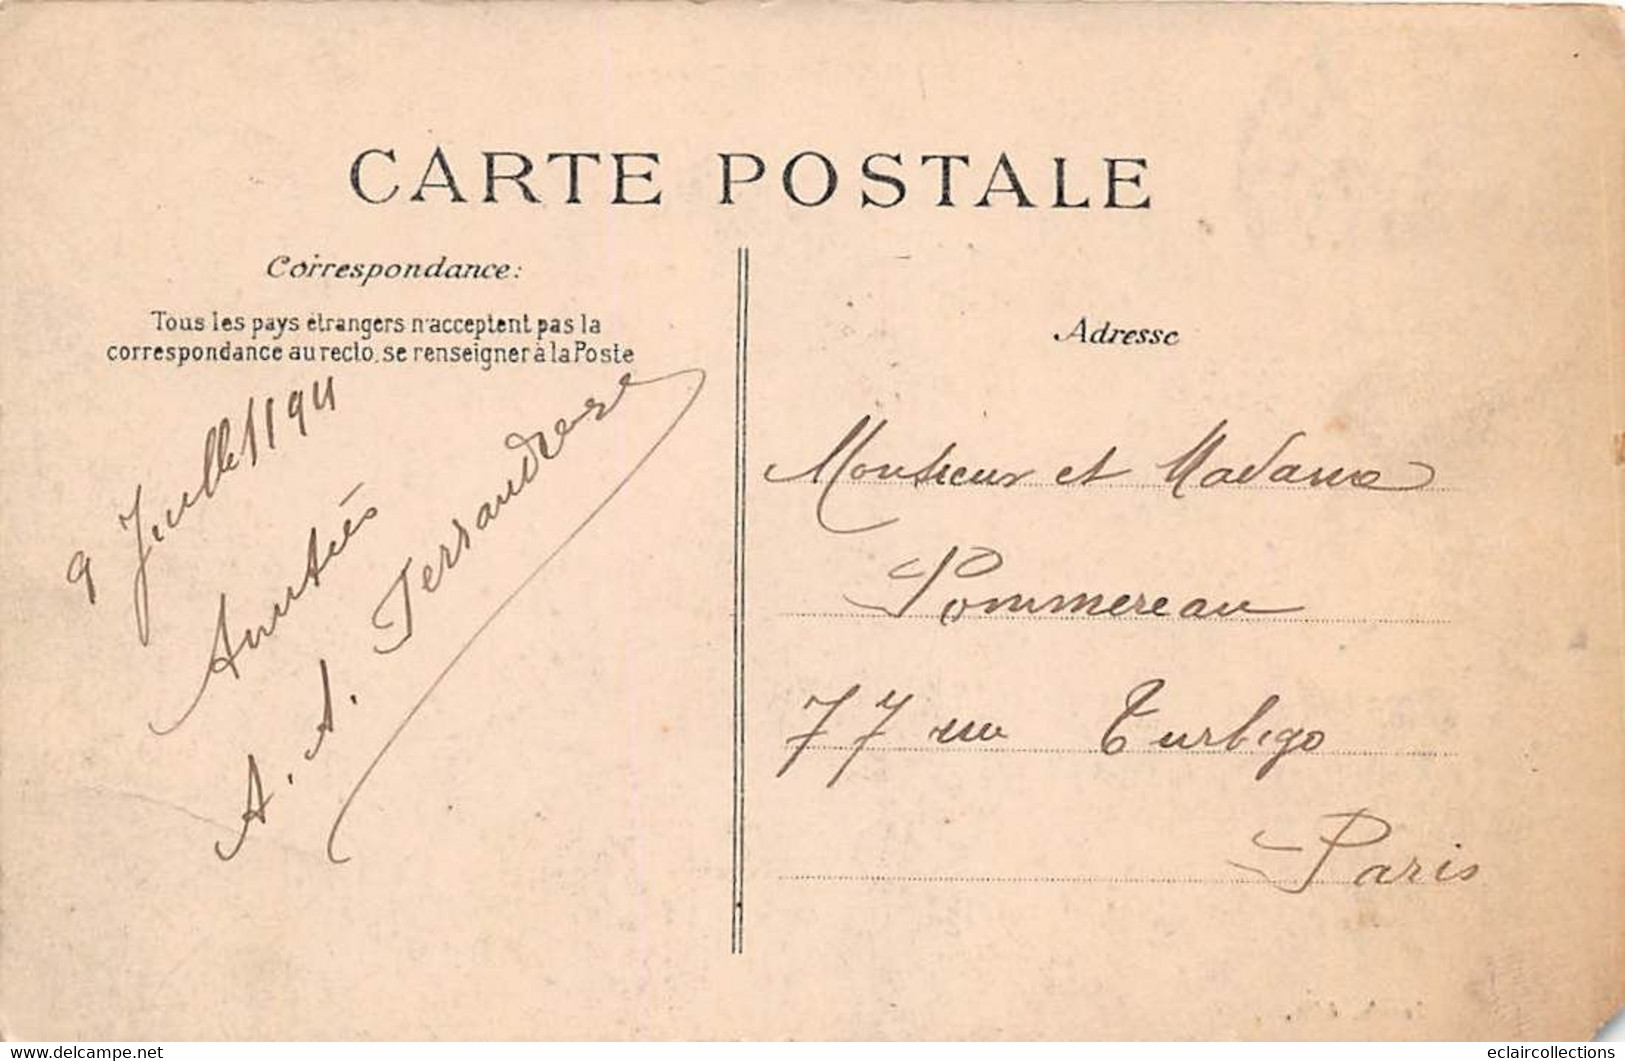 CARTE POSTALE
Correspondance:
Tous les pays étrangers n'acceptent pas la
correspondance au recto, se renseigner à la Poste
9 Juillet 1911
Amitiés
A. A. Terrandrese
Adresse
Monsieur et Madame
Pommereau
77 rue Turbigo
Paris
https://www.delcampe.net
eclaircollections